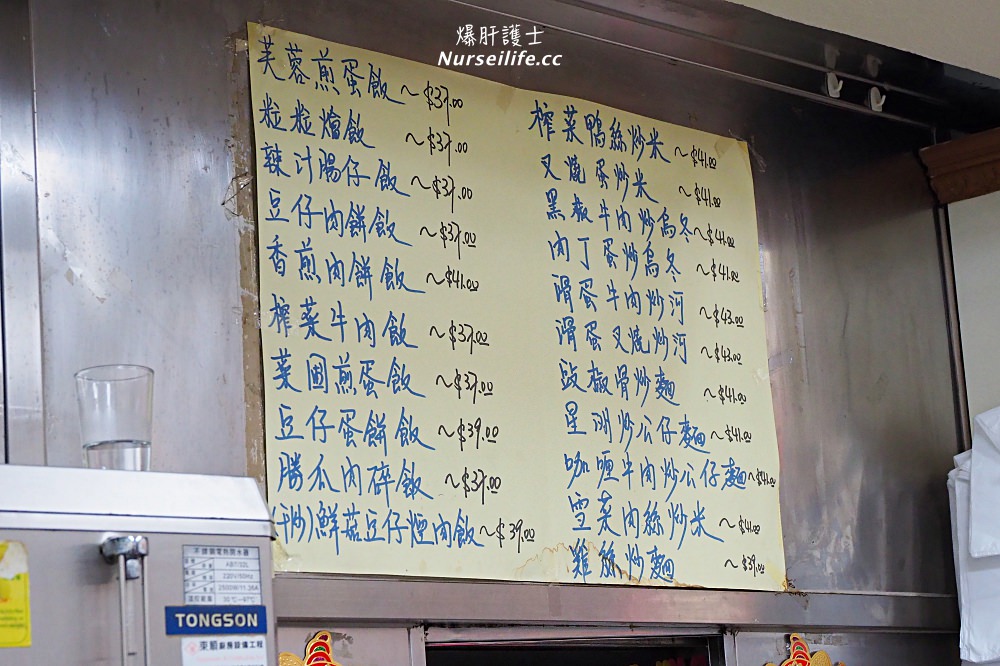 爆肝護士
Nurseilife.cc
芙蓉煎蛋飯～$37.00
粒粒燴飯 ～$37.00
辣汁腸仔飯～$37.00
豆仔肉餅飯～$37.00
香煎肉餅飯～$41.00
榨菜牛肉飯～$37.00
菜圃煎蛋飯～$37.00
豆仔蛋餅飯～$39.00
勝瓜肉碎飯～$37.00
(干炒)鮮菇豆仔煙肉飯～$39.00
榨菜鴨絲炒米～$41.00
叉燒蛋炒米～$41.00
黑椒牛肉炒烏冬～$41.00
肉丁蛋炒烏冬～$41.00
滑蛋牛肉炒河～$43.00
滑蛋叉燒炒河～$43.00
豉椒骨炒麵～$41.00
星洲炒公仔麵～$41.00
咖喱牛肉炒公仔麵～$41.00
雪菜肉絲炒米～$41.00
雞絲炒麵～$39.00
不銹鋼電熱開水器
220V/50Hz
30℃—97℃
TONGSON
東順廚房設備工程